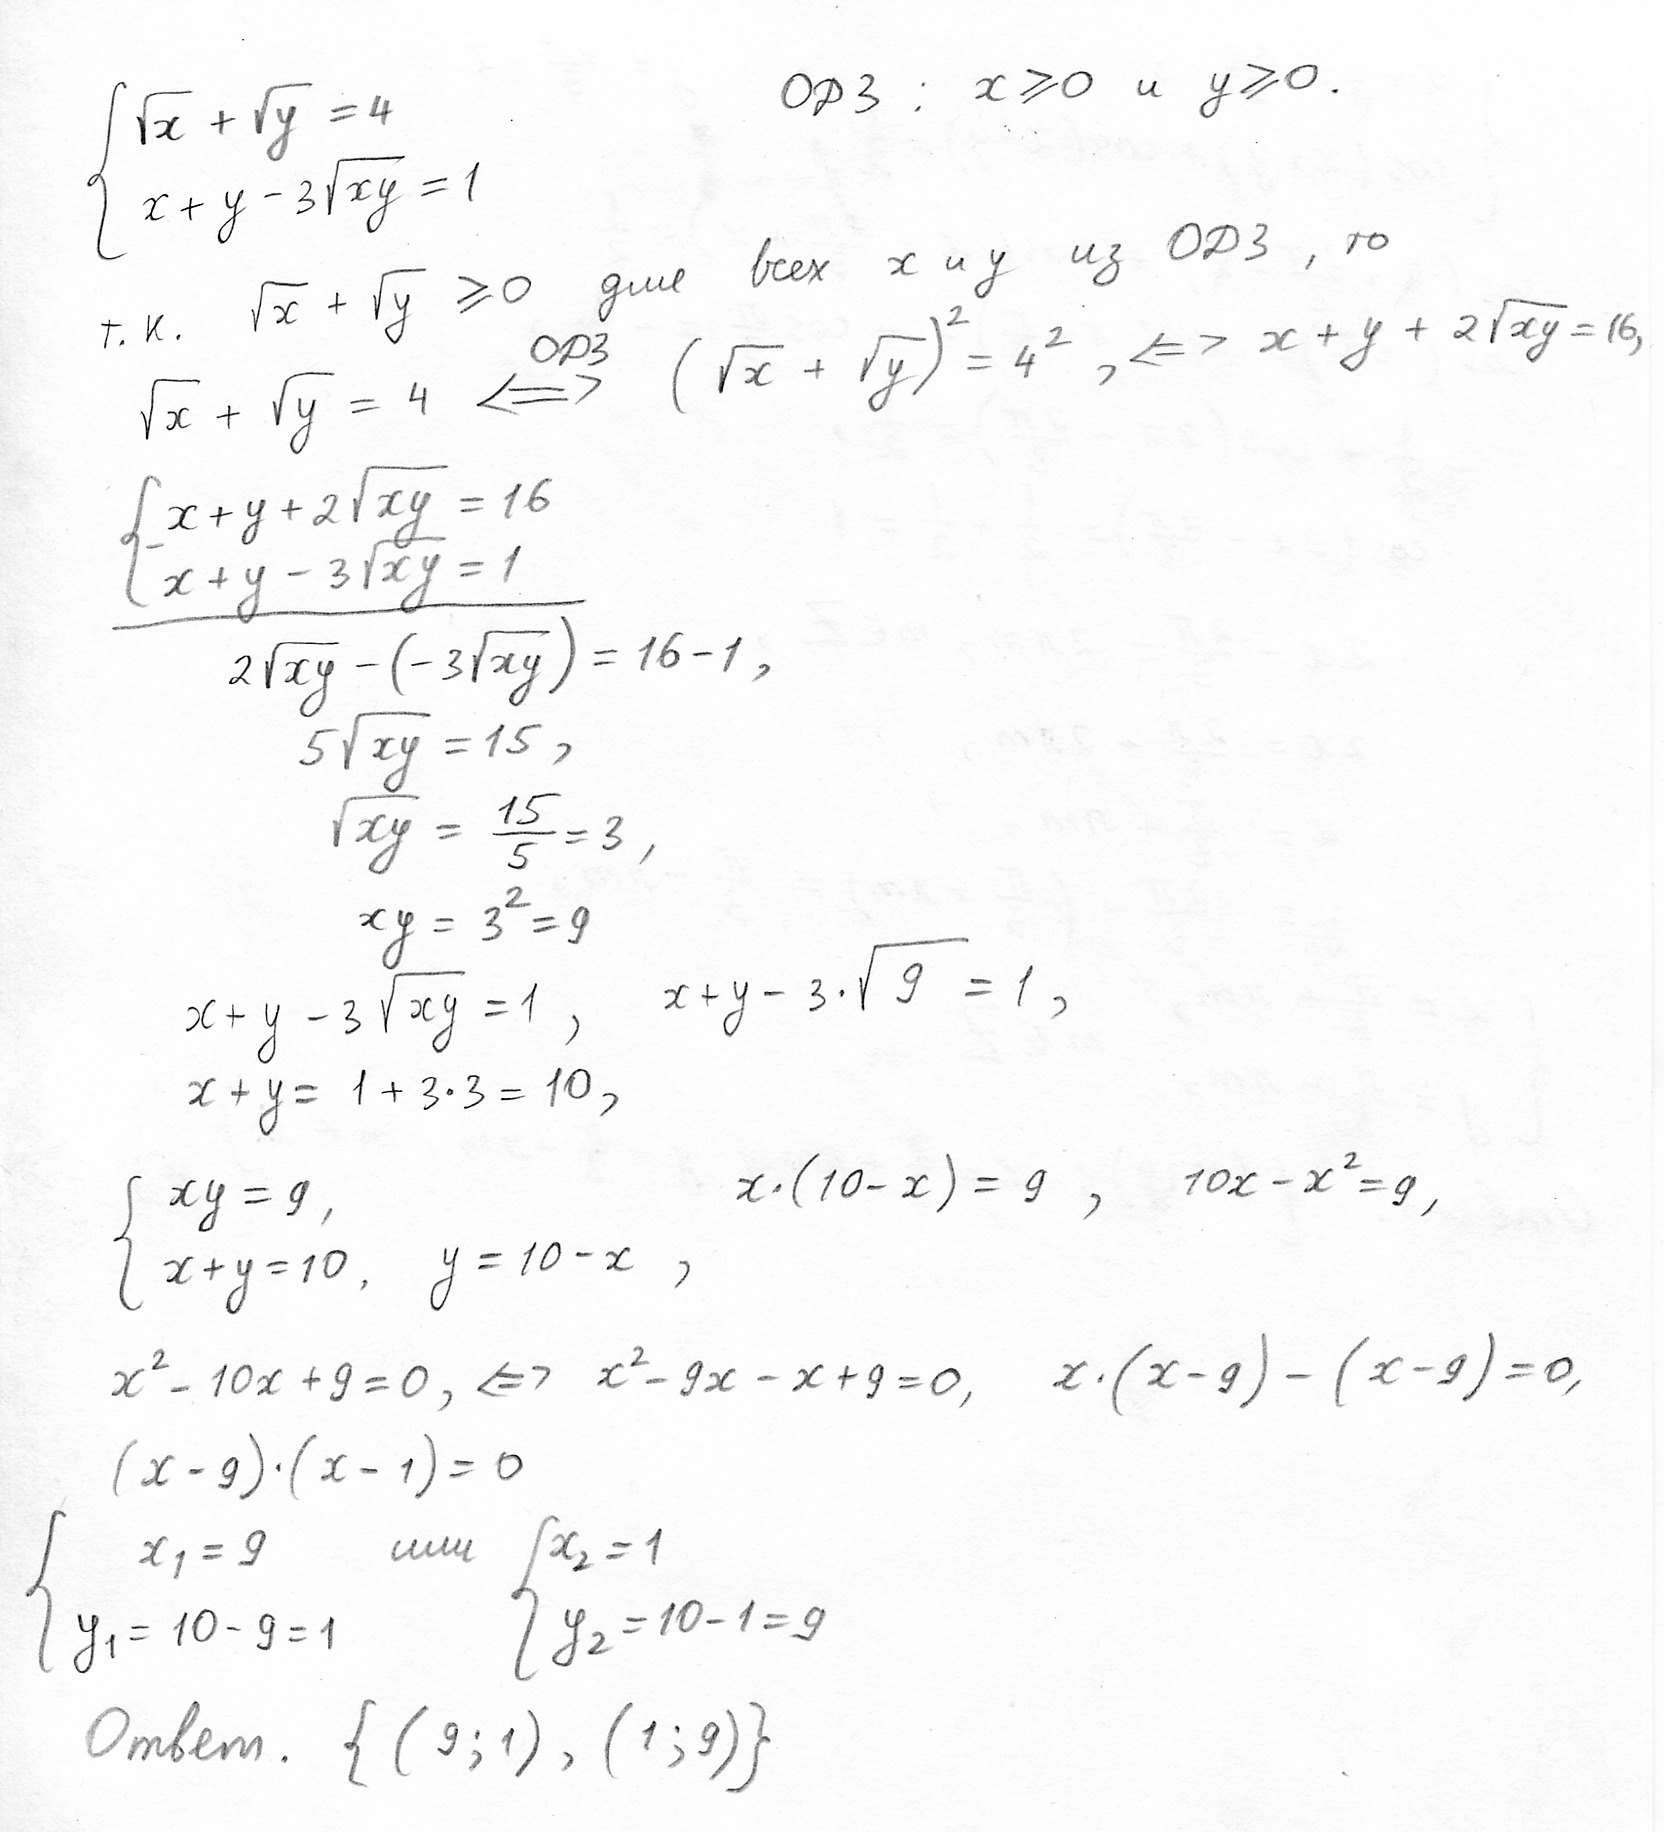 { √x + √y = 4    ОДЗ : x ⩾ 0 и y ⩾ 0.
x + y - 3√xy = 1
т. к. √x + √y ⩾ 0 для всех x и y из ОДЗ, то
√x + √y = 4 <=> ОДЗ (√x + √y)² = 4², <=> x + y + 2√xy = 16,
{ x + y + 2√xy = 16
- x + y - 3√xy = 1
2√xy - (-3√xy) = 16 - 1,
5√xy = 15,
√xy = 15/5 = 3,
xy = 3² = 9
x + y - 3√xy = 1, x + y - 3·√9 = 1,
x + y = 1 + 3·3 = 10,
{ xy = 9,    x·(10 - x) = 9, 10x - x² = 9,
x + y = 10, y = 10 - x,
x² - 10x + 9 = 0, <=> x² - 9x - x + 9 = 0, x·(x - 9) - (x - 9) = 0,
(x - 9)·(x - 1) = 0
{ x₁ = 9 или { x₂ = 1
y₁ = 10 - 9 = 1    y₂ = 10 - 1 = 9
Ответ. {(9; 1), (1; 9)}